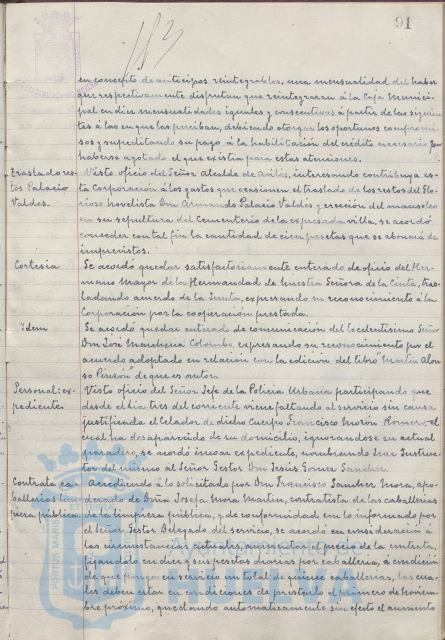 91
113
en concepto de anticipos reintegrables, una mensualidad del haber
que respectivamente disfrutan que reintegraran á la Caja Munici-
pal en diez mensualidades iguales y consecutivas á partir de las siguien-
tes á las en que las perciban, debiendo otorgar los oportunos compromi-
sos y supeditando su pago á la habilitación del crédito necesario por
haberse agotado el que existía para estas atenciones.
Traslado res-
tos Palacio
Valdes.
Visto oficio del Señor Alcalde de Avilés, interesando contribuya es-
ta Corporación á los gastos que ocasionen el traslado de los restos del Glo-
rioso novelista Don Armando Palacio Valdés y erección del mausoleo
en su sepultura del Cementerio de la expresada villa, se acordó
conceder con tal fin la cantidad de cien pesetas que se abonará de
imprevistos.
Cortesia
Se acordó quedar satisfactoriamente enterado de oficio del Her-
mano Mayor de la Hermandad de Nuestra Señora de la Cinta, tras-
ladando acuerdo de la Junta, expresando su reconocimiento á la
Corporación por la cooperación prestada.
Idem
Se acordó quedar enterado de comunicación del Excelentisimo Señor
Don José Marchena Colombo, expresando su reconocimiento por el
acuerdo adoptado en relación con la edición del libro "Martin Alon-
so Pinzón" de que es autor.
Personal: ex-
pedientes
Visto oficio del Señor Jefe de la Policia Urbana participando que
desde el dia tres del corriente viene faltando al servicio sin causa
justificada el Celador de dicho Cuerpo Francisco Morón Romero, el
cual ha desaparecido de su domicilio, ignorandose su actual
paradero, se acordó incoar expediente, nombrando Juez Instruc-
tor del mismo al Señor Gestor Don Jesús Gomez Sanchez.
Contrata ca-
ballerias lim-
pieza pública
Accediendo á lo solicitado por Don Francisco Sanchez Mora, apo-
derado de Doña Josefa Mora Martin, contratista de las caballerias
de la limpieza pública, y de conformidad con lo informado por
el Señor Gestor Delegado del servicio, se acordó en consideración á
las circunstancias actuales, aumentar el precio de la contrata,
fijandolo en diez pesetas diarias por caballeria, á condición
de que ponga en servicio un total de quince caballerias, las cua-
les deben estar en condiciones de prestarlo el primero de noviem-
bre próximo, quedando automaticamente sin efecto el aumento